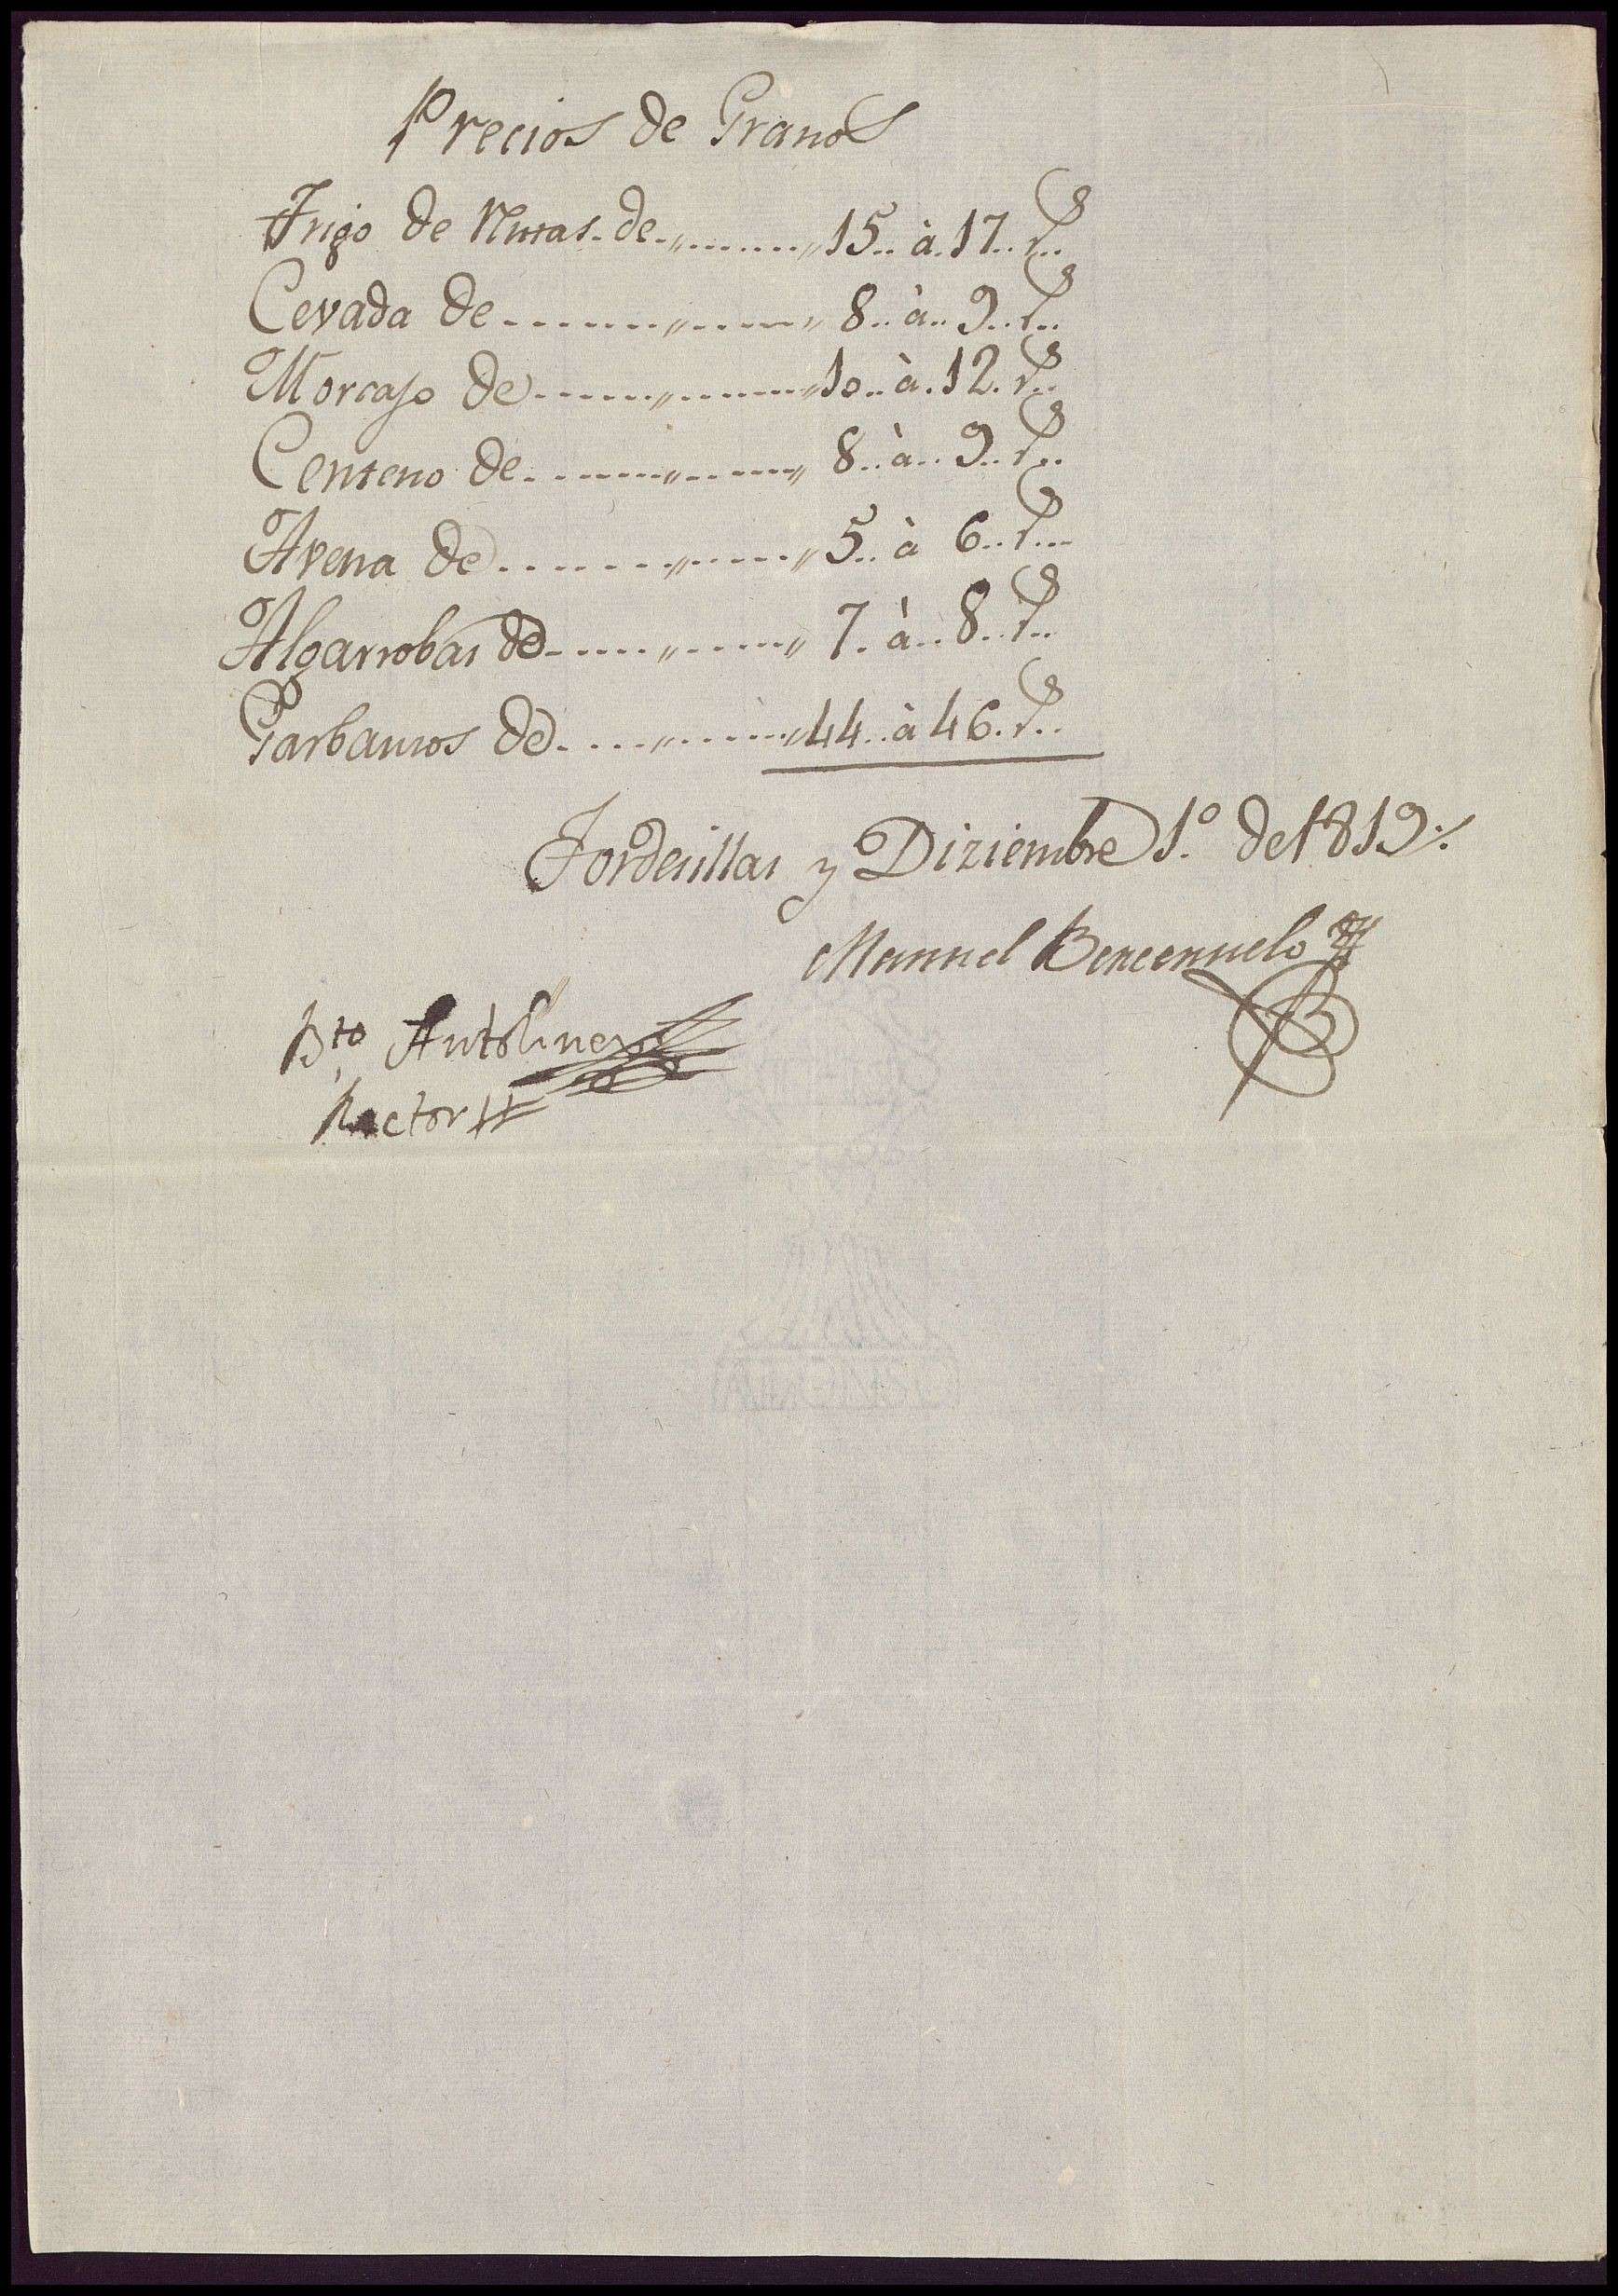 Precios de Granos
Trigo de de 15 .. à . 17 .. rˢ ..
Cevada de 8 .. à .. 9 .. rˢ ..
Morcajo de 10 .. à . 12 . rˢ ..
Centeno de 8 .. à .. 9 .. rˢ ..
Avena de 5 .. à 6 .. rˢ ...
Algarrobas de 7 . à .. 8 .. rˢ ..
Garbanzos de 44 .. à 46 . rˢ ..
Tordesillas y Diziembre 1.º de 1819
Manuel
Bᵗᵒ Antolinez
Rector